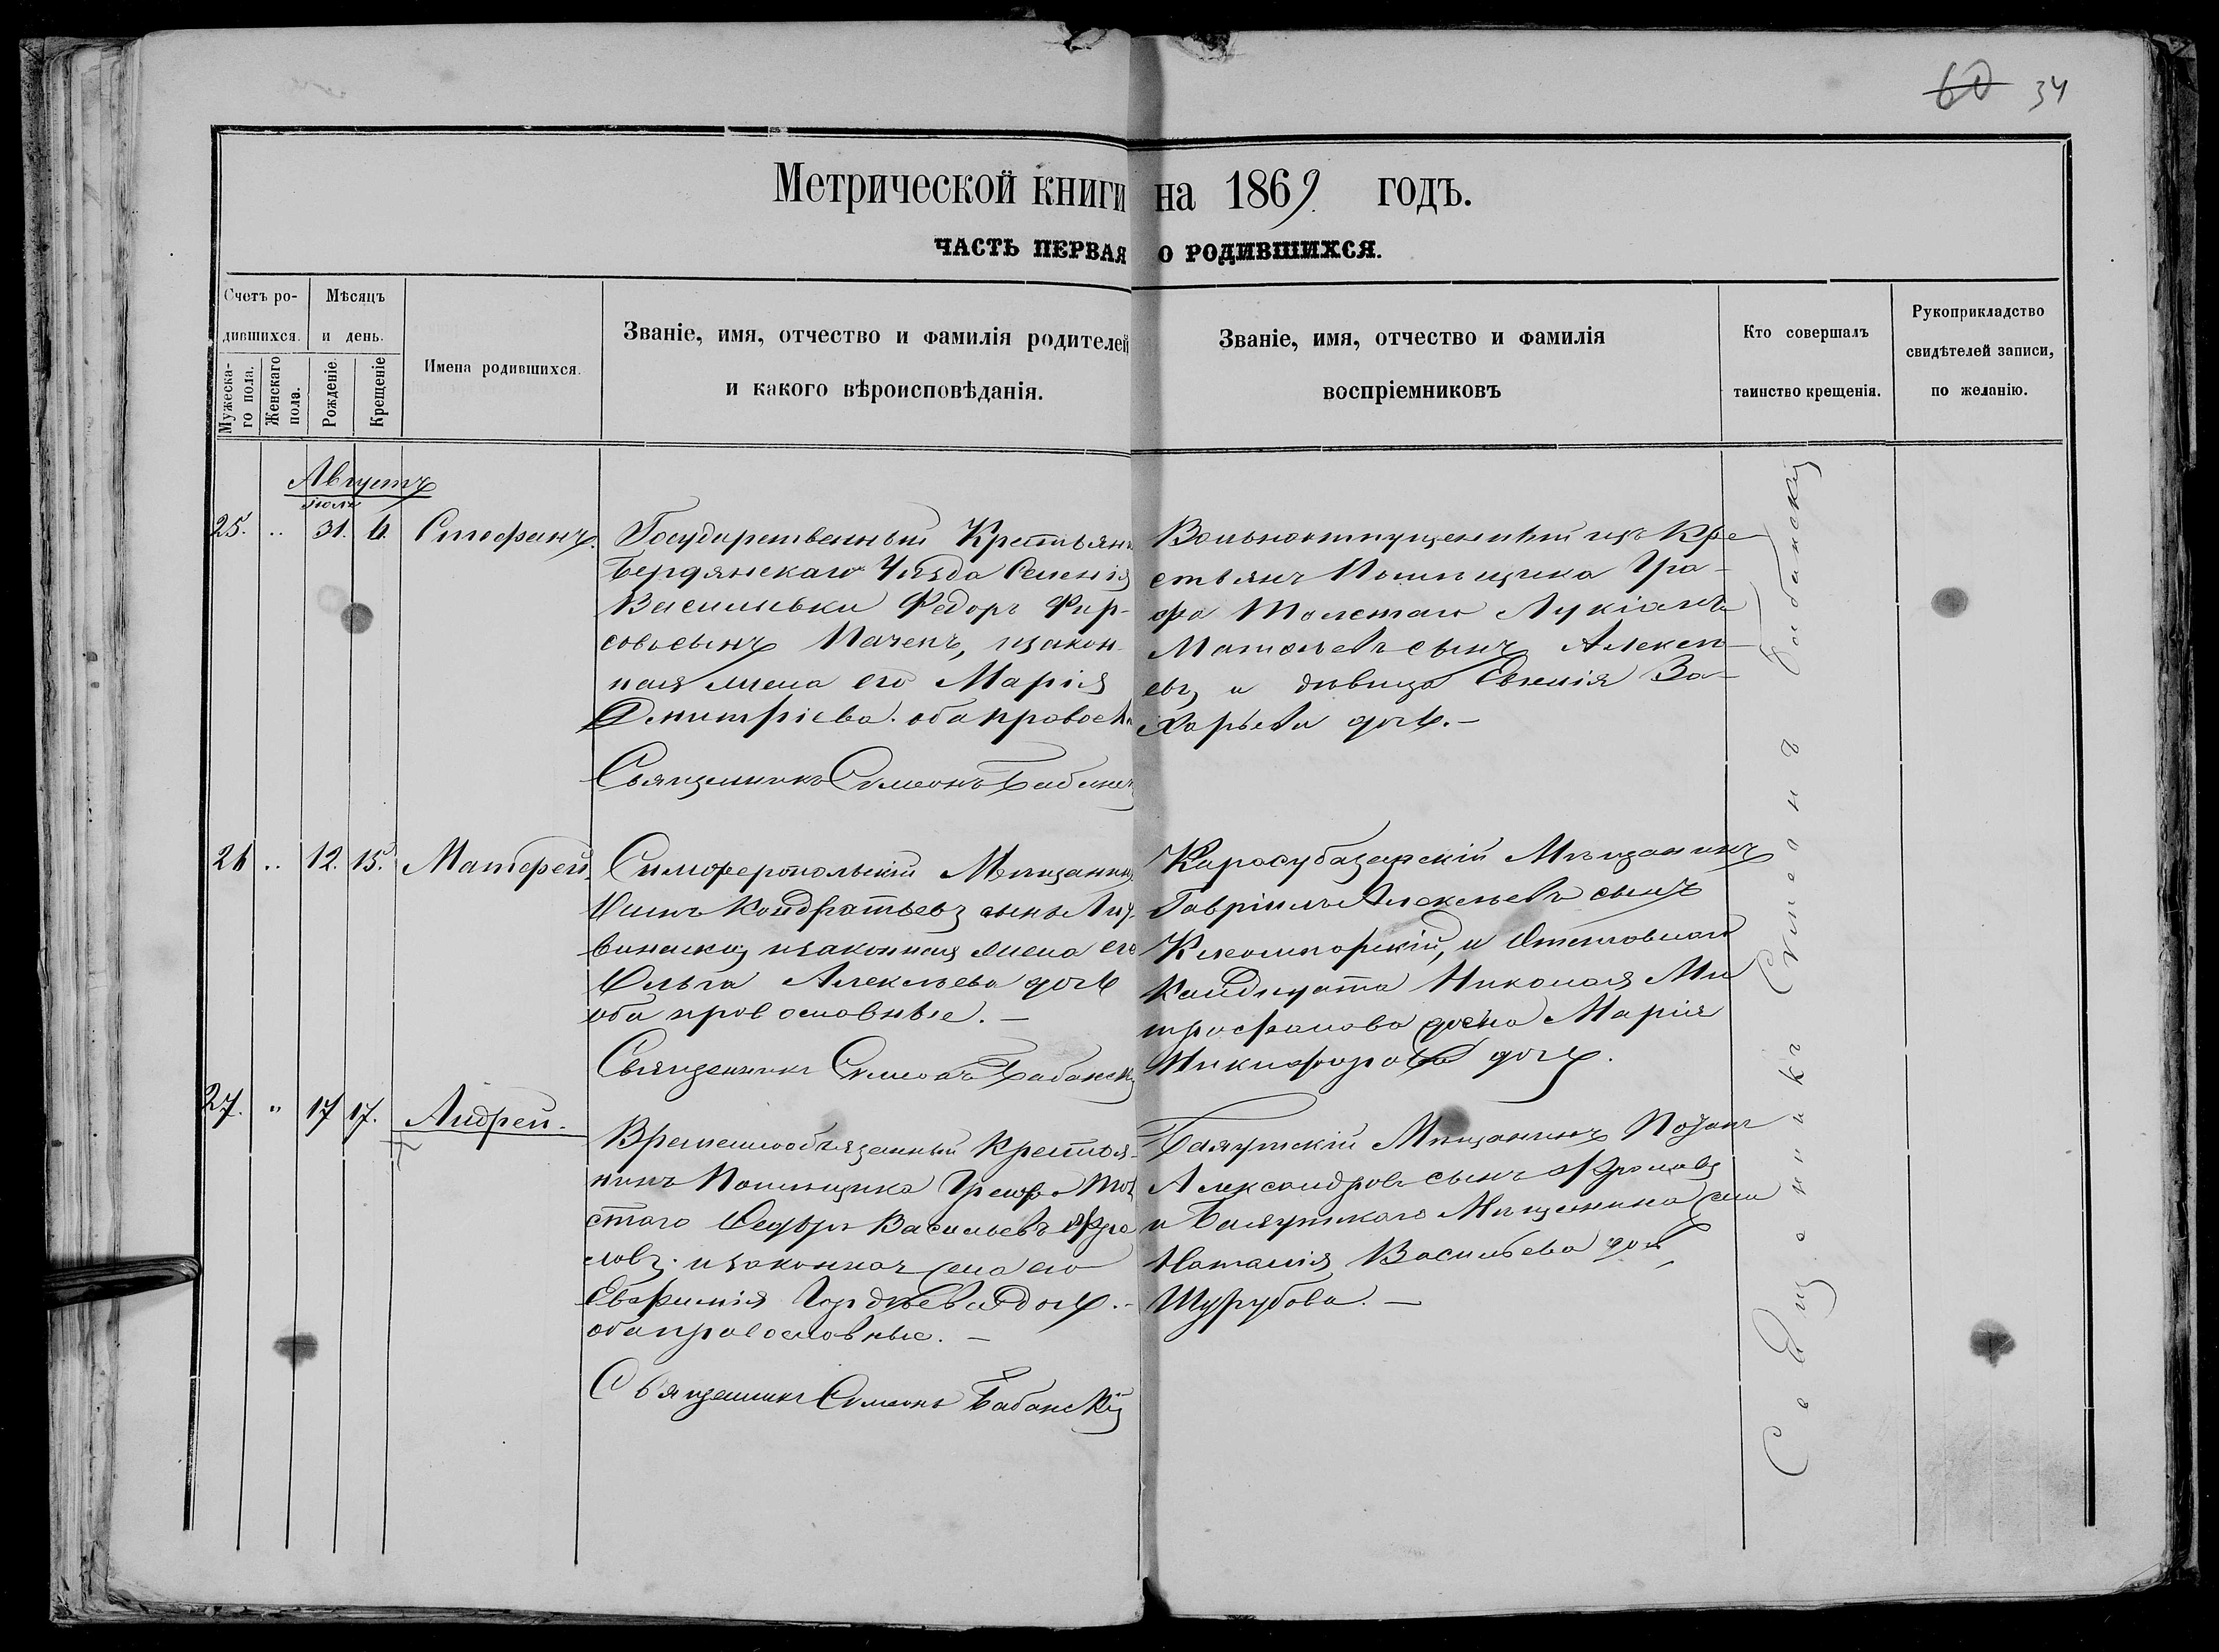 60 34
Метрической книги на 1869 годъ.
ЧАСТЬ ПЕРВАЯ О РОДИВШИХСЯ.
Счетъ ро-
дившихся.
Мужеска-
го пола.
Женскаго
пола.
Мѣсяцъ
и день.
Рожденіе.
Крещеніе
Имена родившихся.
Званіе, имя, отчество и фамилія родителей
и какого вѣроисповѣданія.
Званіе, имя, отчество и фамилія
воспріемниковъ
Кто совершалъ
таинство крещенія.
Рукоприкладство
свидѣтелей записи,
по желанію.
Августъ
іюля
25. .. 31. 6. Стефанъ.
Государственный Крестьян
Бердянскаго Уѣзда Селенія
Васильевки Федоръ Фир-
совъ сынъ и закон-
ная жена его Марія
Дмитріева. оба правосла
Священникъ Симеонъ Бабанск
Вольноотпущенный изъ Кре
стьянъ Помѣщика Гра-
фа Толстаго Лукіанъ
Матвѣевъ сынъ Алексѣ-
евъ, и дѣвица Евгенія За-
харьева дочь.-
26 .. 12. 15. Матфей.
Симферопольскій Мѣщанин
Кондратьевъ сынъ
и законная жена его
Ольга Алексѣева дочь
оба православные. -
Священникъ Симеонъ Бабанскі
Карасубазарскій Мѣщанинъ
Гавріилъ Алексѣевъ сынъ
и
Кандидата Николая Ми
трофанова Марія
Никифорова дочь.
27. " 17 17. Андрей.
Временнообязанный Крестья-
нинъ Помѣщика Графа Тол
стаго Ѳедоръ Васильевъ Фро
ловъ. и законная жена его
Евфимія Гордѣева дочь. -
оба православные. -
Священникъ Симеонъ Бабанскій
Мѣщанинъ
Александровъ сынъ Фроловъ
и Мѣщанина жена
Наталія Васильева дочь
Шурубова. -
Священникъ Симеонъ Бабанскій